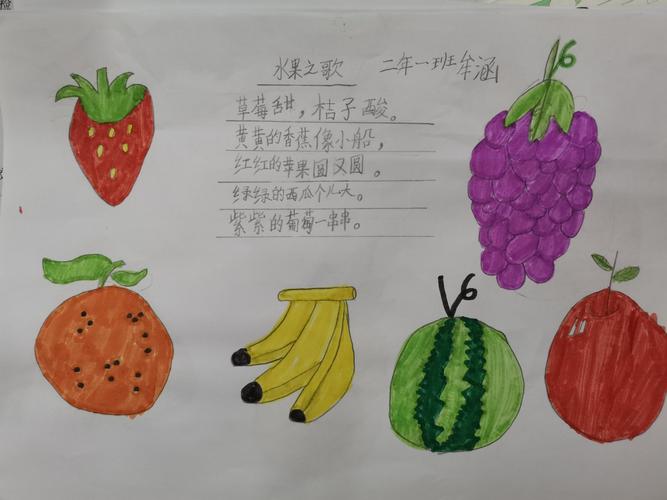 水果之歌 二年一班牟涵
草莓甜，桔子酸。
黄黄的香蕉像小船，
红红的苹果圆又圆。
绿绿的西瓜个儿大。
紫紫的葡萄一串串。